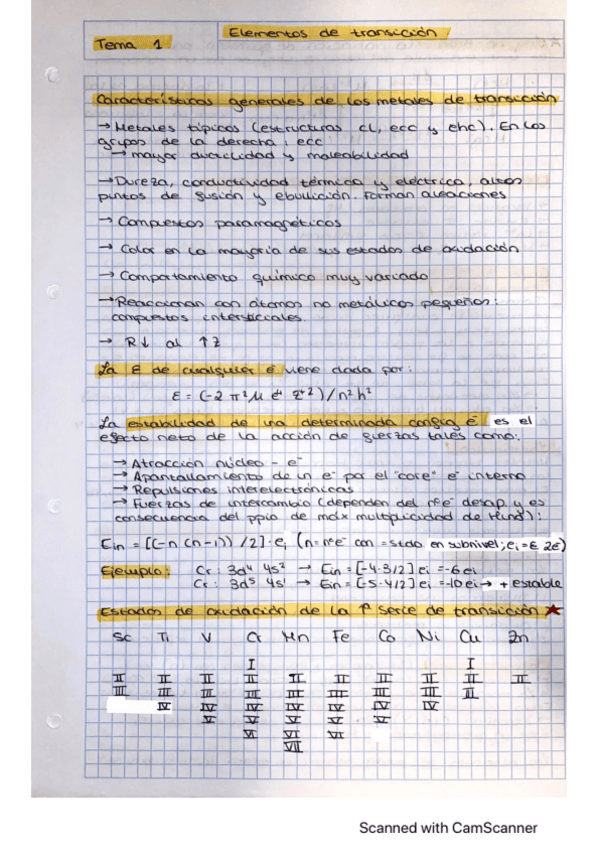 Tema 1
Elementos de transición
Características generales de los metales de transición
→ Metales típicos (estructuras cl, ecc y ehc). En los
grupos de la derecha: ecc
→ mayor ductilidad y maleabilidad
→ Dureza, conductividad térmica y eléctrica, altos
puntos de fusión y ebullición. Forman aleaciones
→ Compuestos paramagnéticos
→ Color en la mayoría de sus estados de oxidación
→ Comportamiento químico muy variado
→ Reaccionan con átomos no metálicos pequeños:
compuestos intersticiales.
→ R↓ al ↑Z
La E de cualquier e⁻ viene dada por:
E = (-2 π² μ e⁴ Z*²) / n² h²
La estabilidad de una determinada config e⁻ es el
efecto neto de la acción de fuerzas tales como:
→ Atracción núcleo - e⁻
→ Apantallamiento de un e⁻ por el "core" e⁻ interno
→ Repulsiones interelectrónicas
→ Fuerzas de intercambio (dependen del nº e⁻ desap. y es
consecuencia del ppio de máx multiplicidad de Hund):
Ein = [(-n (n-1)) /2]·ei (n = nº e⁻ con = stdo en subnivel; ei = E 2E)
Ejemplo: Cr: 3d⁴ 4s² → Ein = [-4·3/2] ei = -6 ei
Cr: 3d⁵ 4s¹ → Ein = [-5·4/2] ei = -10 ei → + estable
Estados de oxidación de la 1ª serie de transición ★
Sc Ti V Cr Mn Fe Co Ni Cu Zn
I I
II II II II II II II II II II
III III III III III III III III II
IV IV IV IV IV IV IV
V V V V V
VI VI VI
VII
Scanned with CamScanner